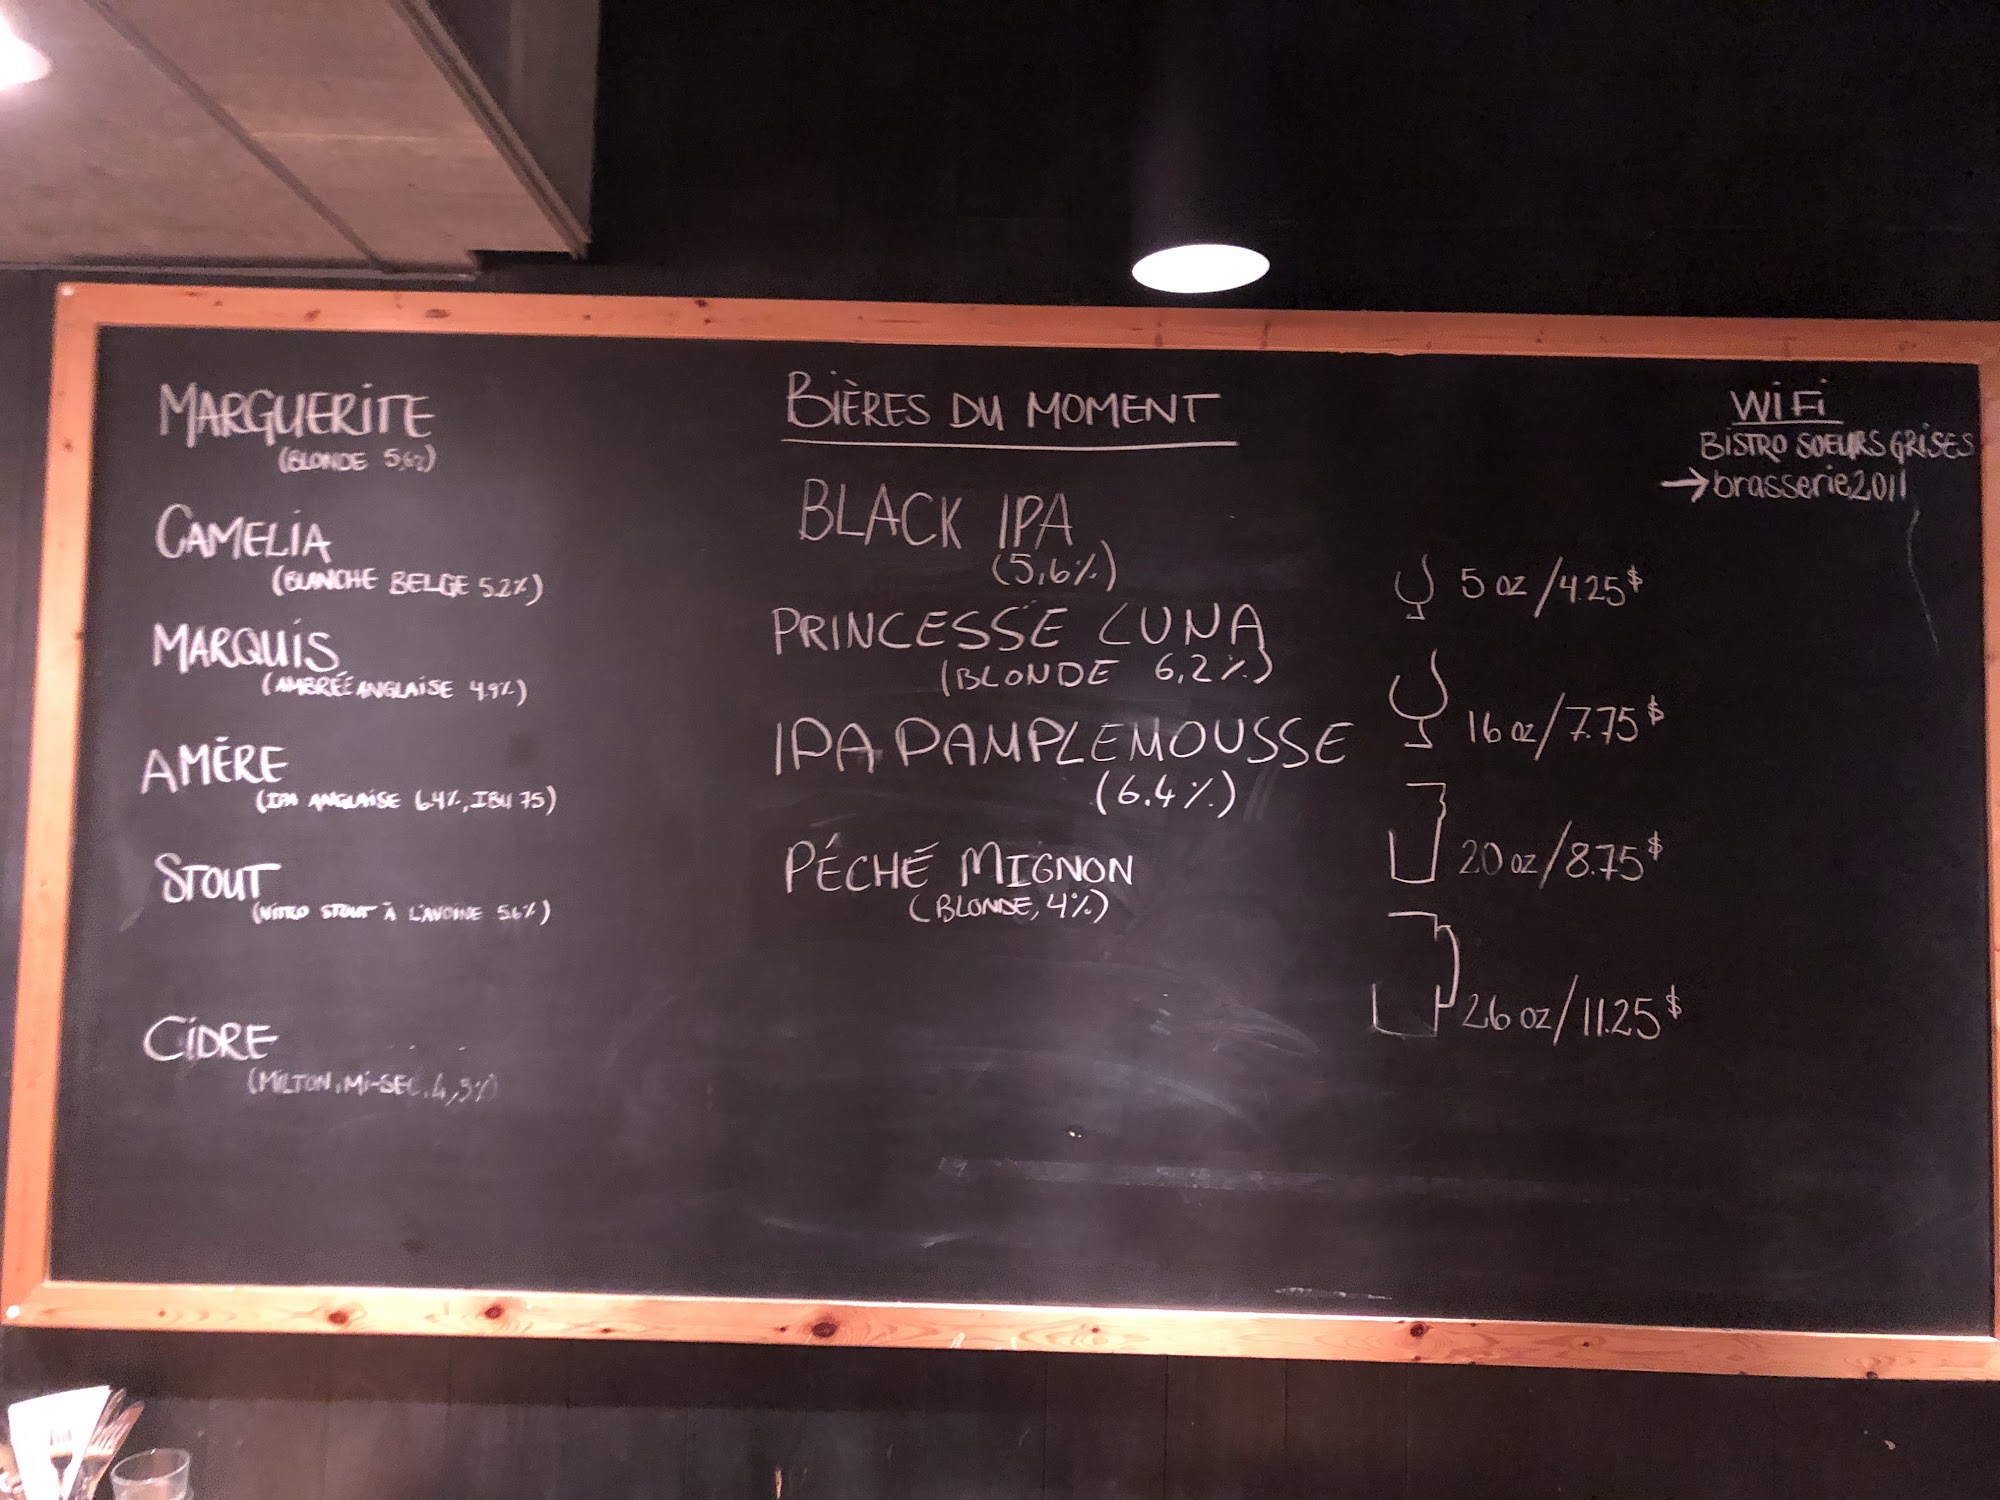 MARGUERITE
(BLONDE 5,6%)
CAMELIA
(BLANCHE BELGE 5.2%)
MARQUIS
(AMBRÉE ANGLAISE 4,9%)
AMÈRE
(IPA ANGLAISE 6.4%, IBU 75)
STOUT
(NITRO STOUT À L'AVOINE 5.6%)
CIDRE
(MILTON, MI-SEC,
BIÈRES DU MOMENT
BLACK IPA
(5,6%)
PRINCESSE LUNA
(BLONDE 6,2%)
IPA PAMPLEMOUSSE
(6.4%)
PÉCHÉ MIGNON
(BLONDE, 4%)
WiFi
BISTRO SOEURS GRISES
→brasserie2011
5 oz/4.25$
16 oz/7.75$
20 oz/8.75$
26 oz/11.25$